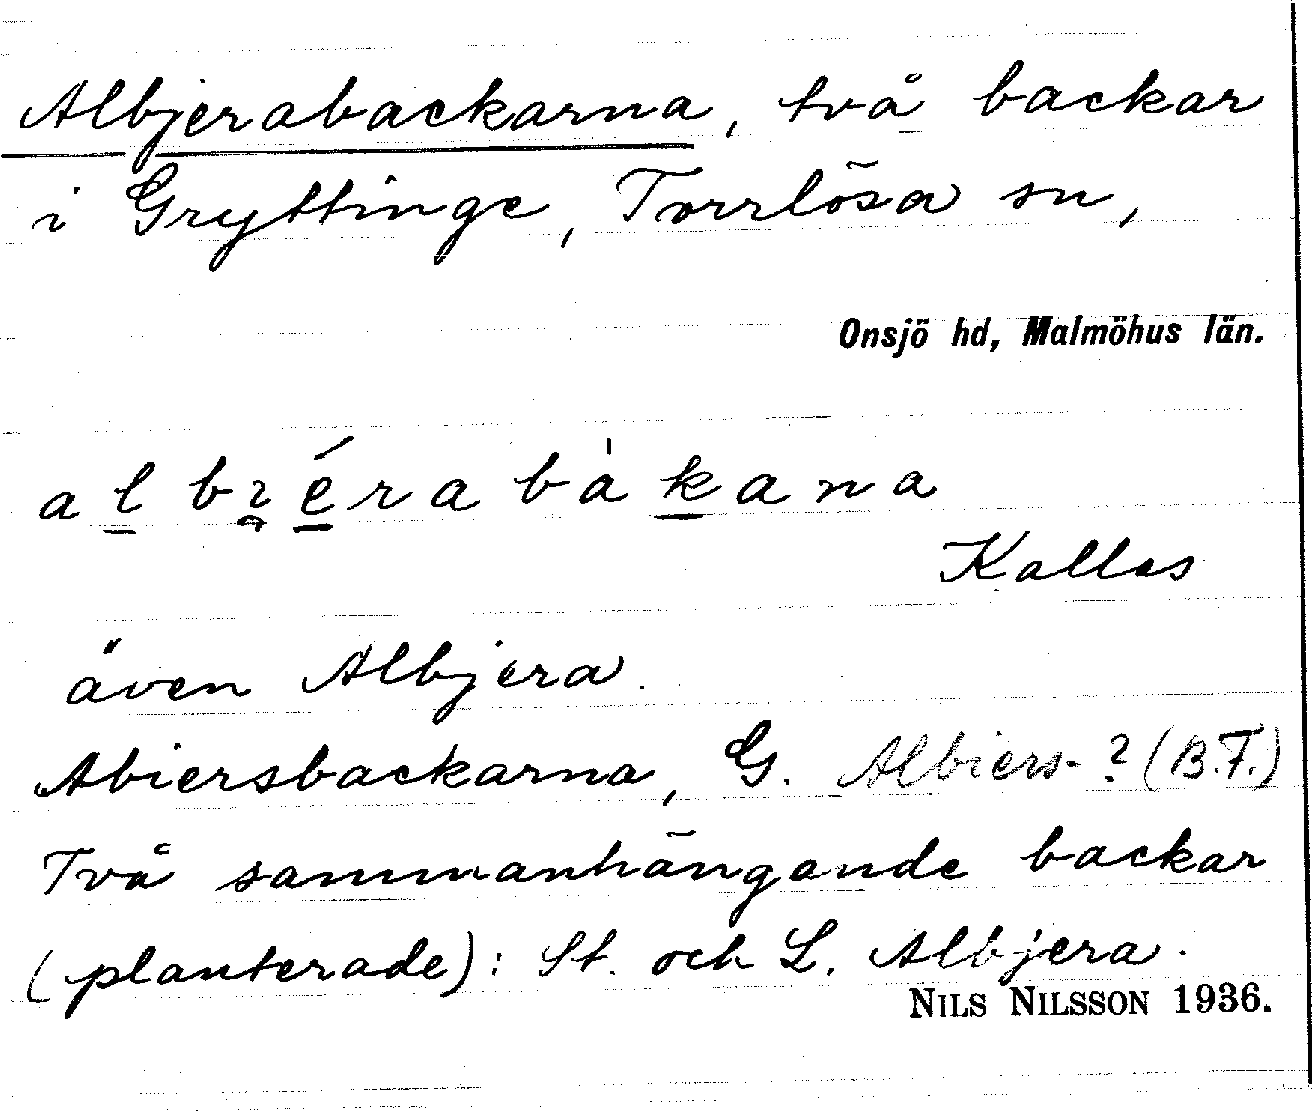 Albjerabackarna, två backar
i Gryttinge, Torrlösa sn,
Onsjö hd, Malmöhus län.
albɪérabàkana
Kallas
även Albjera.
Abiersbackarna, G. Albiers-? (B.F.)
Två sammanhängande backar
(planterade): St. och L. Albjera.
NILS NILSSON 1936.